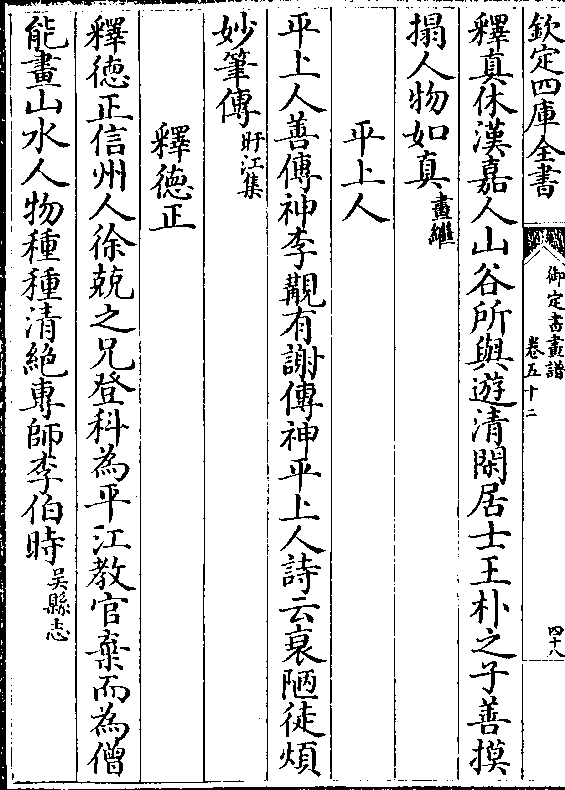 欽定四庫全書
御定書畫譜
卷五十二
四十八
釋真休漢嘉人山谷所與遊清閑居士王朴之子善摸
搨人物如真畫繼
平上人
平上人善傳神李覯有謝傳神平上人詩云衰陋徒煩
妙筆傳盱江集
釋德正
釋德正信州人徐兢之兄登科為平江教官棄而為僧
能畫山水人物種種清絶專師李伯時吳縣志